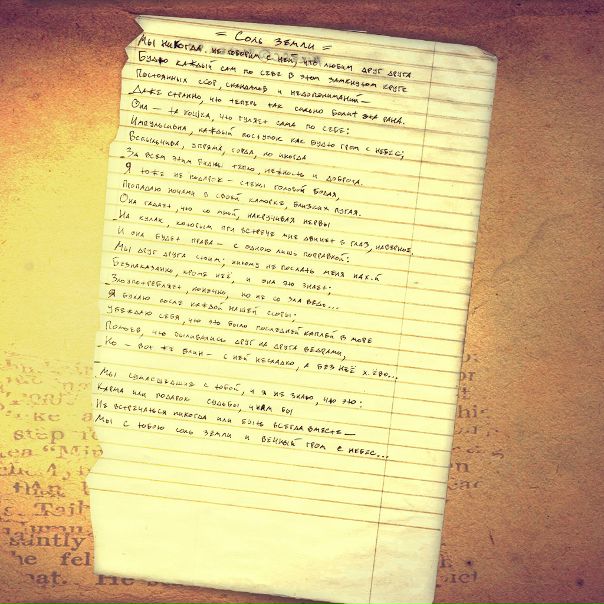 = Соль земли =
Мы никогда не говорим с ней, что любим друг друга
Будто каждый сам по себе в этом замкнутом круге
Постоянных ссор, скандалов и недопониманий —
Даже странно, что теперь так сильно болит эта рана.
Она — та кошка, что гуляет сама по себе:
Импульсивна, каждый поступок как будто гром с небес;
Вспыльчива, упряма, горда, но иногда
За всем этим видны тепло, нежность и доброта.
Я тоже не подарок — стежи головой болят,
Пропадаю ночами в своей каморке, близких пугая.
Она гадает, что со мной, накручивая нервы
На кулак, которым при встрече мне двинет в глаз, наверное.
И она будет права — с одною лишь поправкой:
Мы друг друга стоим; никому не послать меня нах.й
Безнаказанно, кроме неё, и она это знает:
Злоупотребляет, конечно, но не со зла ведь...
Я бухаю после каждой нашей ссоры:
Убеждаю себя, что это было последней каплей в море
Помоев, что выливались друг на друга вёдрами,
Но — вот же блин — с ней несладко, а без неё х.ёво...
Мы сумасшедшие с тобой, и я не знаю, что это:
Карма или подарок судьбы, чтоб мы
Не встречаться никогда или быть всегда вместе —
Мы с тобою соль земли и вечный гром с небес...